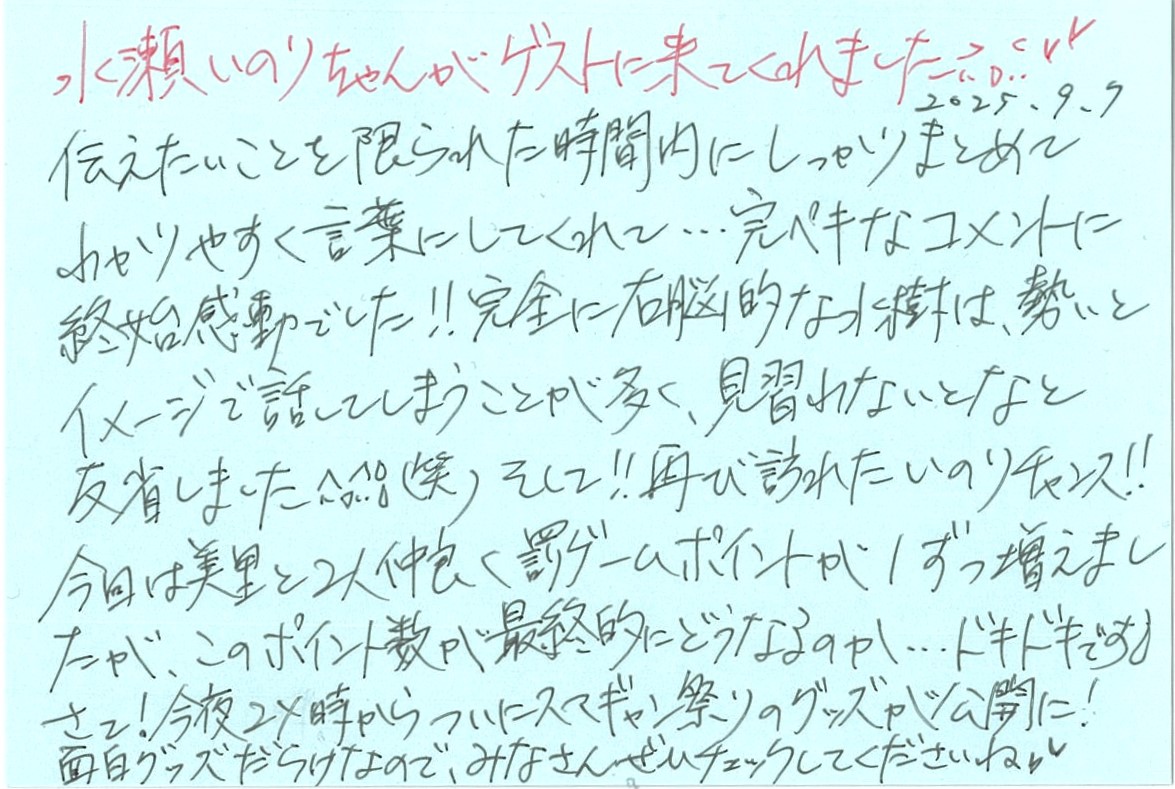 水瀬いのりちゃんがゲストに来てくれました
2025.9.7
伝えたいことを限られた時間内にしっかりまとめて
わかりやすく言葉にしてくれて…完ペキなコメントに
終始感動でした!!完全に右脳的な水樹は、勢いと
イメージで話してしまうことが多く、見習わないとなと
反省しました^^;(笑)そして!!再び訪れたいのりチャンス!!
今回は美里と2人仲良く罰ゲームポイントが1ずつ増えまし
たが、このポイント数が最終的にどうなるのか…ドキドキですね
さて!今夜24時からついにスマギャン祭りのグッズが公開に!
面白グッズだらけなので、みなさんぜひチェックしてくださいね